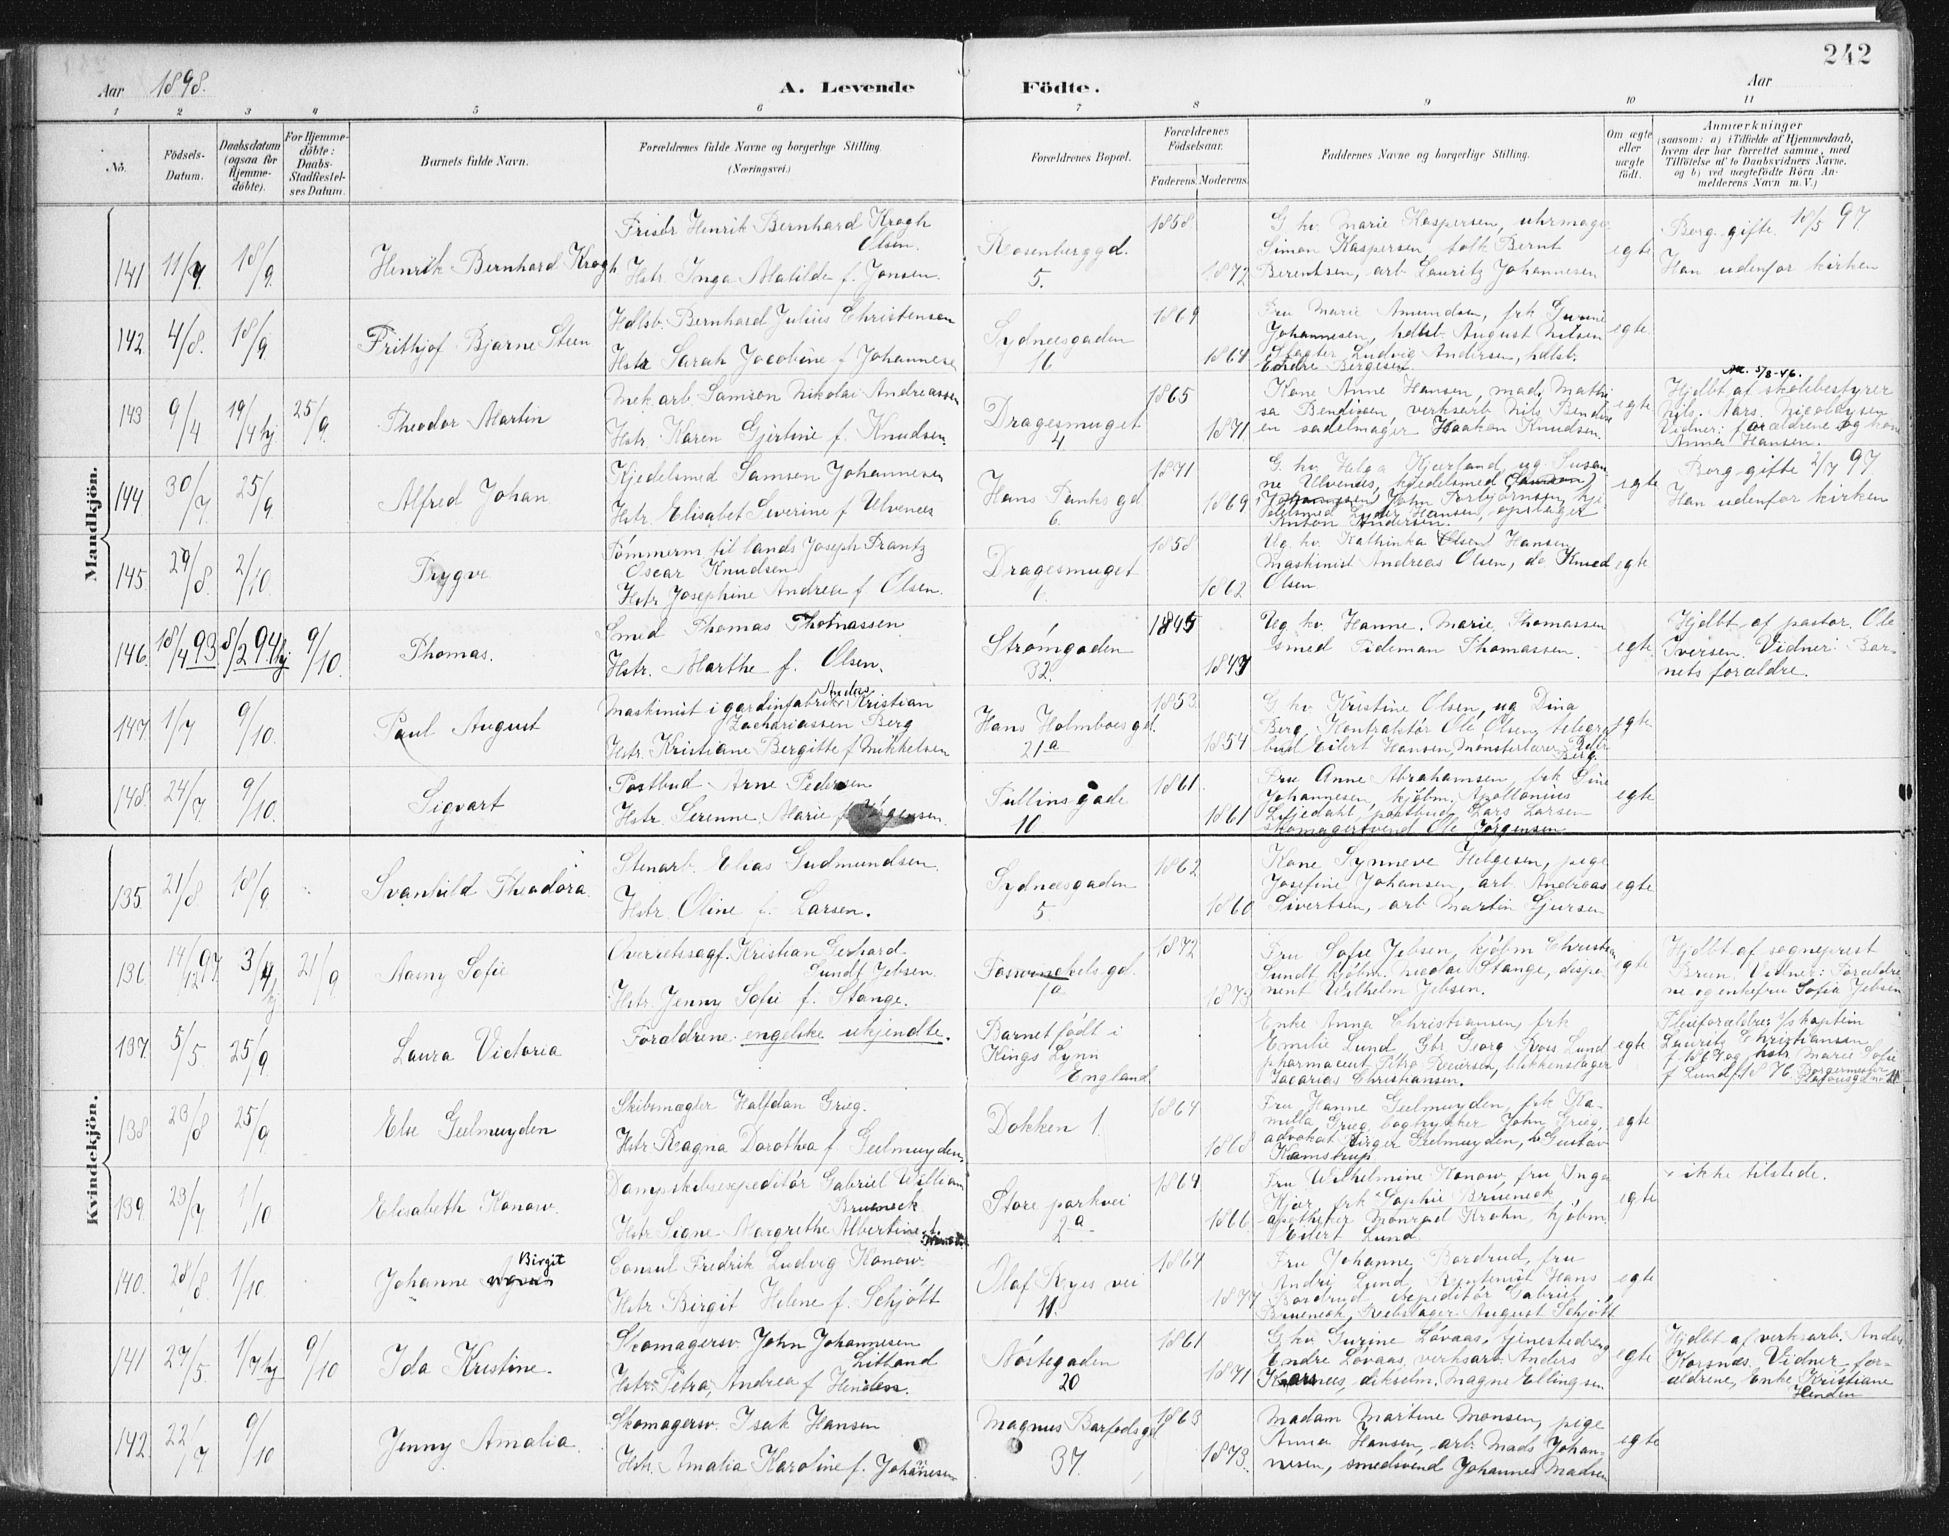 242
Aar 1898.
A. Levende Födte.
Aar
1 2 3 4 5 6 7 8 9 10 11
No.
Födsels-Datum.
Daabsdatum (ogsaa for Hjemme-döbte).
For Hjemme-döbte: Daabs-Stadfæstel-ses Datum.
Barnets fulde Navn.
Forældrenes fulde Navne og borgerlige Stilling (Næringsvei.)
Forældrenes Bopæl.
Forældrenes Födselsaar.
Faderens. Moderens.
Faddernes Navne og borgerlige Stilling.
Om ægte eller uægte födt.
Anmærkninger
(saasom: a) i Tilfælde af Hjemmedaab, hvem der har forrettet samme, med Tilföielse af to Daabsvidners Navne, og b) ved uægtefödte Börn An-melderens Navn m. V.)
Mandkjön.
141 11/7. 18/9. Henrik Bernhard Krogh
Frisör Henrik Bernhard Krogh Olsen.
Hstr. Inga Matilde f. Jonsen.
Rosenberggd. 5.
1858. 1872
G. kv. Marie Kaspersen, uhrmager
Simon Kaspersen, tolk Bernt
Berentsen, arb. Lauritz Johannesen
egte
Borg. gifte 18/5 97
Han udenfor kirken
142 4/8. 18/9 Frithjof Bjarne Steen
Hdlsb. Bernhard Julius Christensen
Hstr. Sarah Jacobine f. Johannesen
Sydnesgaden 16
1869 1864
Fru Marie Amundsen, frk
Johannesen, hdlsb. August Nilsen
Slagter Ludvig Andersen, hdlsb.
Endre Bergesen.
egte
143 9/4 19/4 hj 25/9. Theodor Martin
Mek. arb. Samsen Nikolai Andreassen
Hstr. Karen Gjertine f. Knudsen.
Dragesmuget 4
1865 1871
Kone Anne Hansen, mad. Mathi-
sa Bendixen, verksarb. Nils Bendix-
en sadelmager Haakon Knudsen.
egte
Hjdbt af skolebestyrer
Nils. Aars. Nicolaysen
Vidner: forældrene og kone
Anna Hansen.
144 30/7. 25/9 Alfred Johan
Kjedelsmed Samsen Johannesen
Hstr. Elisabet Severine f. Ulvenes
Hans Tanks gd 6.
1871 1869
G. kv. Helga Kjærland, ug. Susan-
ne Ulvenes, kjedelsmed
John Torbjörnsen, kje-
delsmed Hansen, opsaaget
Anton Andersen.
egte
Borg. gifte 2/7 97
Han udenfor kirken
145. 29/8. 2/10. Trygve
Tömmerm. til lands Joseph Frantz
Oscar Knudsen
Hstr. Josephine Andrea f. Olsen.
Dragesmuget 6.
1858 1862
Ug. kv. Kathinka Hansen
Maskinist Andreas Olsen, do Knud
Olsen
egte
146. 18/4 93 8/2 94 hj 9/10. Thomas.
Smed Thomas Thomassen
Hstr. Marthe f. Olsen.
Strömgaden 32.
1845 1847
Ug. kv. Hanne. Marie Thomassen
smed Tideman Thomassen.
egte
Hjdbt. af pastor. Ole
Iversen. Vidner: Bar-
nets forældre.
147. 1/7 9/10. Paul August
Maskinist i gardinfabrik Andreas Kristian
Zachariassen Berg
Hstr. Kristiane Bergitte f. Mikkelsen
Hans Holmboesgd. 21a
1853. 1854
G. kv. Kristine Olsen, ug. Dina
Berg, Kontraktör Ole Olsen, telegraf-
bud Eilert Hansen, Mönsterlærer Peder
Berg.
egte
148. 24/7. 9/10. Sigvart
Postbud Arne Pedersen
Hstr. Serenne. Marie f. Jörgensen.
Tullins gade 10
1861. 1861
Fru Anne Abrahamsen, frk Sine
Johannesen, kjöbm. Apollonius
Liljedahl, postbud Lars Larsen
skomagersvend Ole Jörgensen
egte
Kvindekjön.
135 21/8. 18/9 Svanhild Theodora.
Stenarb. Elias Gudmundsen.
Hstr. Oline f. Larsen.
Sydnesgaden 5.
1862 1860
Kone Synneve Helgesen, pige
Josefine Johansen, arb. Andreas
Sivertsen, arb Martin Sjursen
egte
136. 14/12 97. 3/4 hj 21/9 Aasny Sofie
Overretssagf. Kristian Gerhard
Sundt Jebsen.
Hstr. Jenny Sofie f. Stange.
Fosswinckels gd. 1a
1872 1873
Fru Sofie Jebsen, kjöbm. Christian
Sundt kjöbm. Nicolai Stange, dispo-
nent Wilhelm Jebsen.
egte
Hjdbt af sogneprest
Brun, Vidner: Forældre-
ne og enkefru Sofia Jebsen
137. 5/5 25/9. Laura Victoria
Forældrene engelske ukjendte.
Barnet födt i
Kings Lynn
England
Enke Anna Christiansen, frk
Emilie Lund, Gbr Georg Lund
pharmaceut Petra blikkenslager
Zacarias Christiansen.
egte
Pleiforældre: s/skaptein
Lauritz Christiansen
f. 1867 og hstr. Marie Sofie
f. Lund f. 1876. Borgermester
Platousgd no 11
138. 23/8 25/9. Else Geelmuyden
Skibsmægler Halfdan Grieg.
Hstr. Ragna Dorothea f. Geelmuyden.
Dokken 1.
1864 1868
Fru Hanne Geelmuyden, frk Ka-
milla Grieg, bogtrykker John Grieg,
advokat Birger Geelmuyden, Gustav
Kamstrup
egte
139. 23/7 1/10 Elisabeth Konow.
Dampskibsexpeditör Gabriel William
Bruenech.
Hstr. Signe Margrethe Albertine f.
Store parkvei 2a
1864 1866.
Fru Wilhelmine Konow, fru Inga
Kjær, frk × Sophie Bruenech,
apotheker Monrad Krohn, kjöbm.
Eilert Lund.
egte
× ikke tilstede.
140. 28/8. 1/10. Johanne Birgit
Consul Fredrik Ludvig Konow.
Hstr. Birgit Helene f. Schjött
Olaf Ryes vei 11.
1864 1877
Fru Johanne Bordrud, fru
Lund, Hans
Bordrud, expeditör Gabriel
Bruenech, Reebslager August Schjött
egte
141. 27/5. 1/7 hj 9/10 Ida Kristine.
Skomagersv. John Johannesen
Litland
Hstr. Petra, Andrea f Henden.
Nöstegaden 20
1861 1871
G. kv. Gurine Lövaas, tjenestedreng
Endre Lövaas verksarb. Anders
Korsnes, dikselm. Magne Ellingsen
egte
Hjdbt af verksarb. Anders
Korsnes. Vidner. for-
ældrene, Enke Kristiane
Henden
142. 22/7 9/10 Jenny Amalia.
Skomagersv. Isak Hansen
Hstr. Amalia Karoline f. Johannesen
Magnus Barfodsgd 37.
1863 1873.
Madam Martine Monsen, pige
Anna Hansen, arb. Mads Johan-
nesen, smedsvend Johannes Madsen
egte